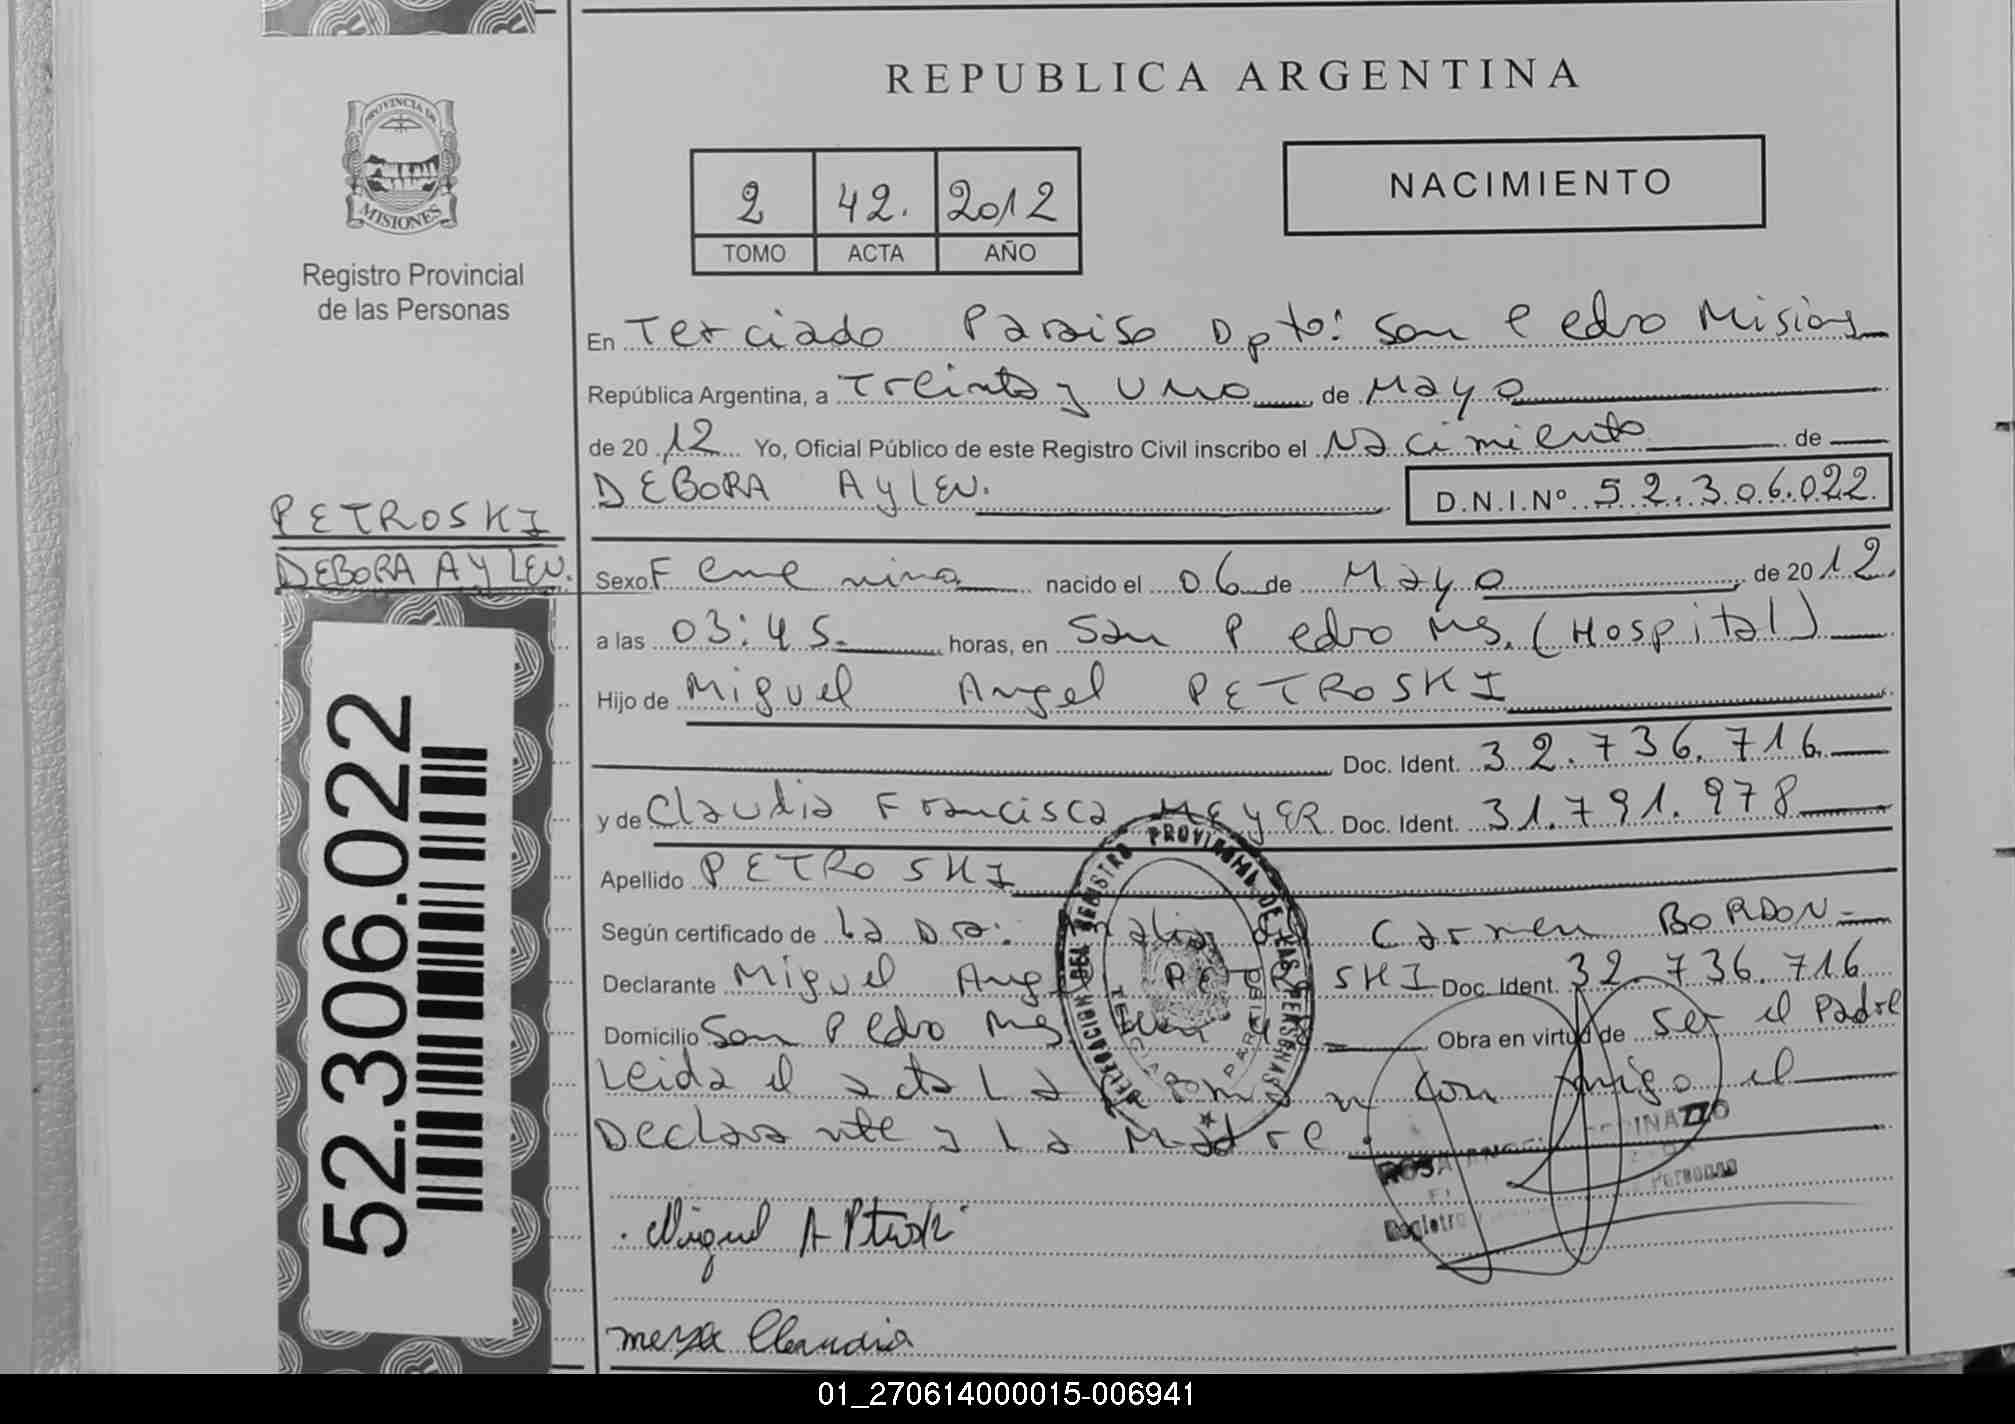 REPUBLICA ARGENTINA
PROVINCIA DE
MISIONES
Registro Provincial
de las Personas
NACIMIENTO
2 42. 2012
TOMO ACTA AÑO
En Terciado Paraiso Dpto: San Pedro Misiones
República Argentina, a Treinta y uno de Mayo
de 2012 Yo, Oficial Público de este Registro Civil inscribo el Nacimiento de
DEBORA AYLEN. D.N.I.Nº 52.306.022
PETROSKI
DEBORA AYLEN.
52.306.022
Sexo Femenino nacido el 06 de Mayo de 2012.
a las 03:45. horas, en San Pedro Ms. (Hospital)
Hijo de Miguel Angel PETROSKI
Doc. Ident. 32.736.716
y de Claudia Francisca MEYER Doc. Ident. 31.791.978
Apellido PETROSKI
Según certificado de La Dra: Carmen BORDON
Declarante Miguel Angel PETROSKI Doc. Ident. 32.736.716
Domicilio San Pedro Ms. Obra en virtud de ser el Padre
Leida el acta La firman conmigo el
Declarante y La Madre.
DELEGACION DEL REGISTRO PROVINCIAL DE LAS PERSONAS
TERCIADO PARAISO
ROSA
Registro Personas
Miguel A
Claudia
01_270614000015-006941